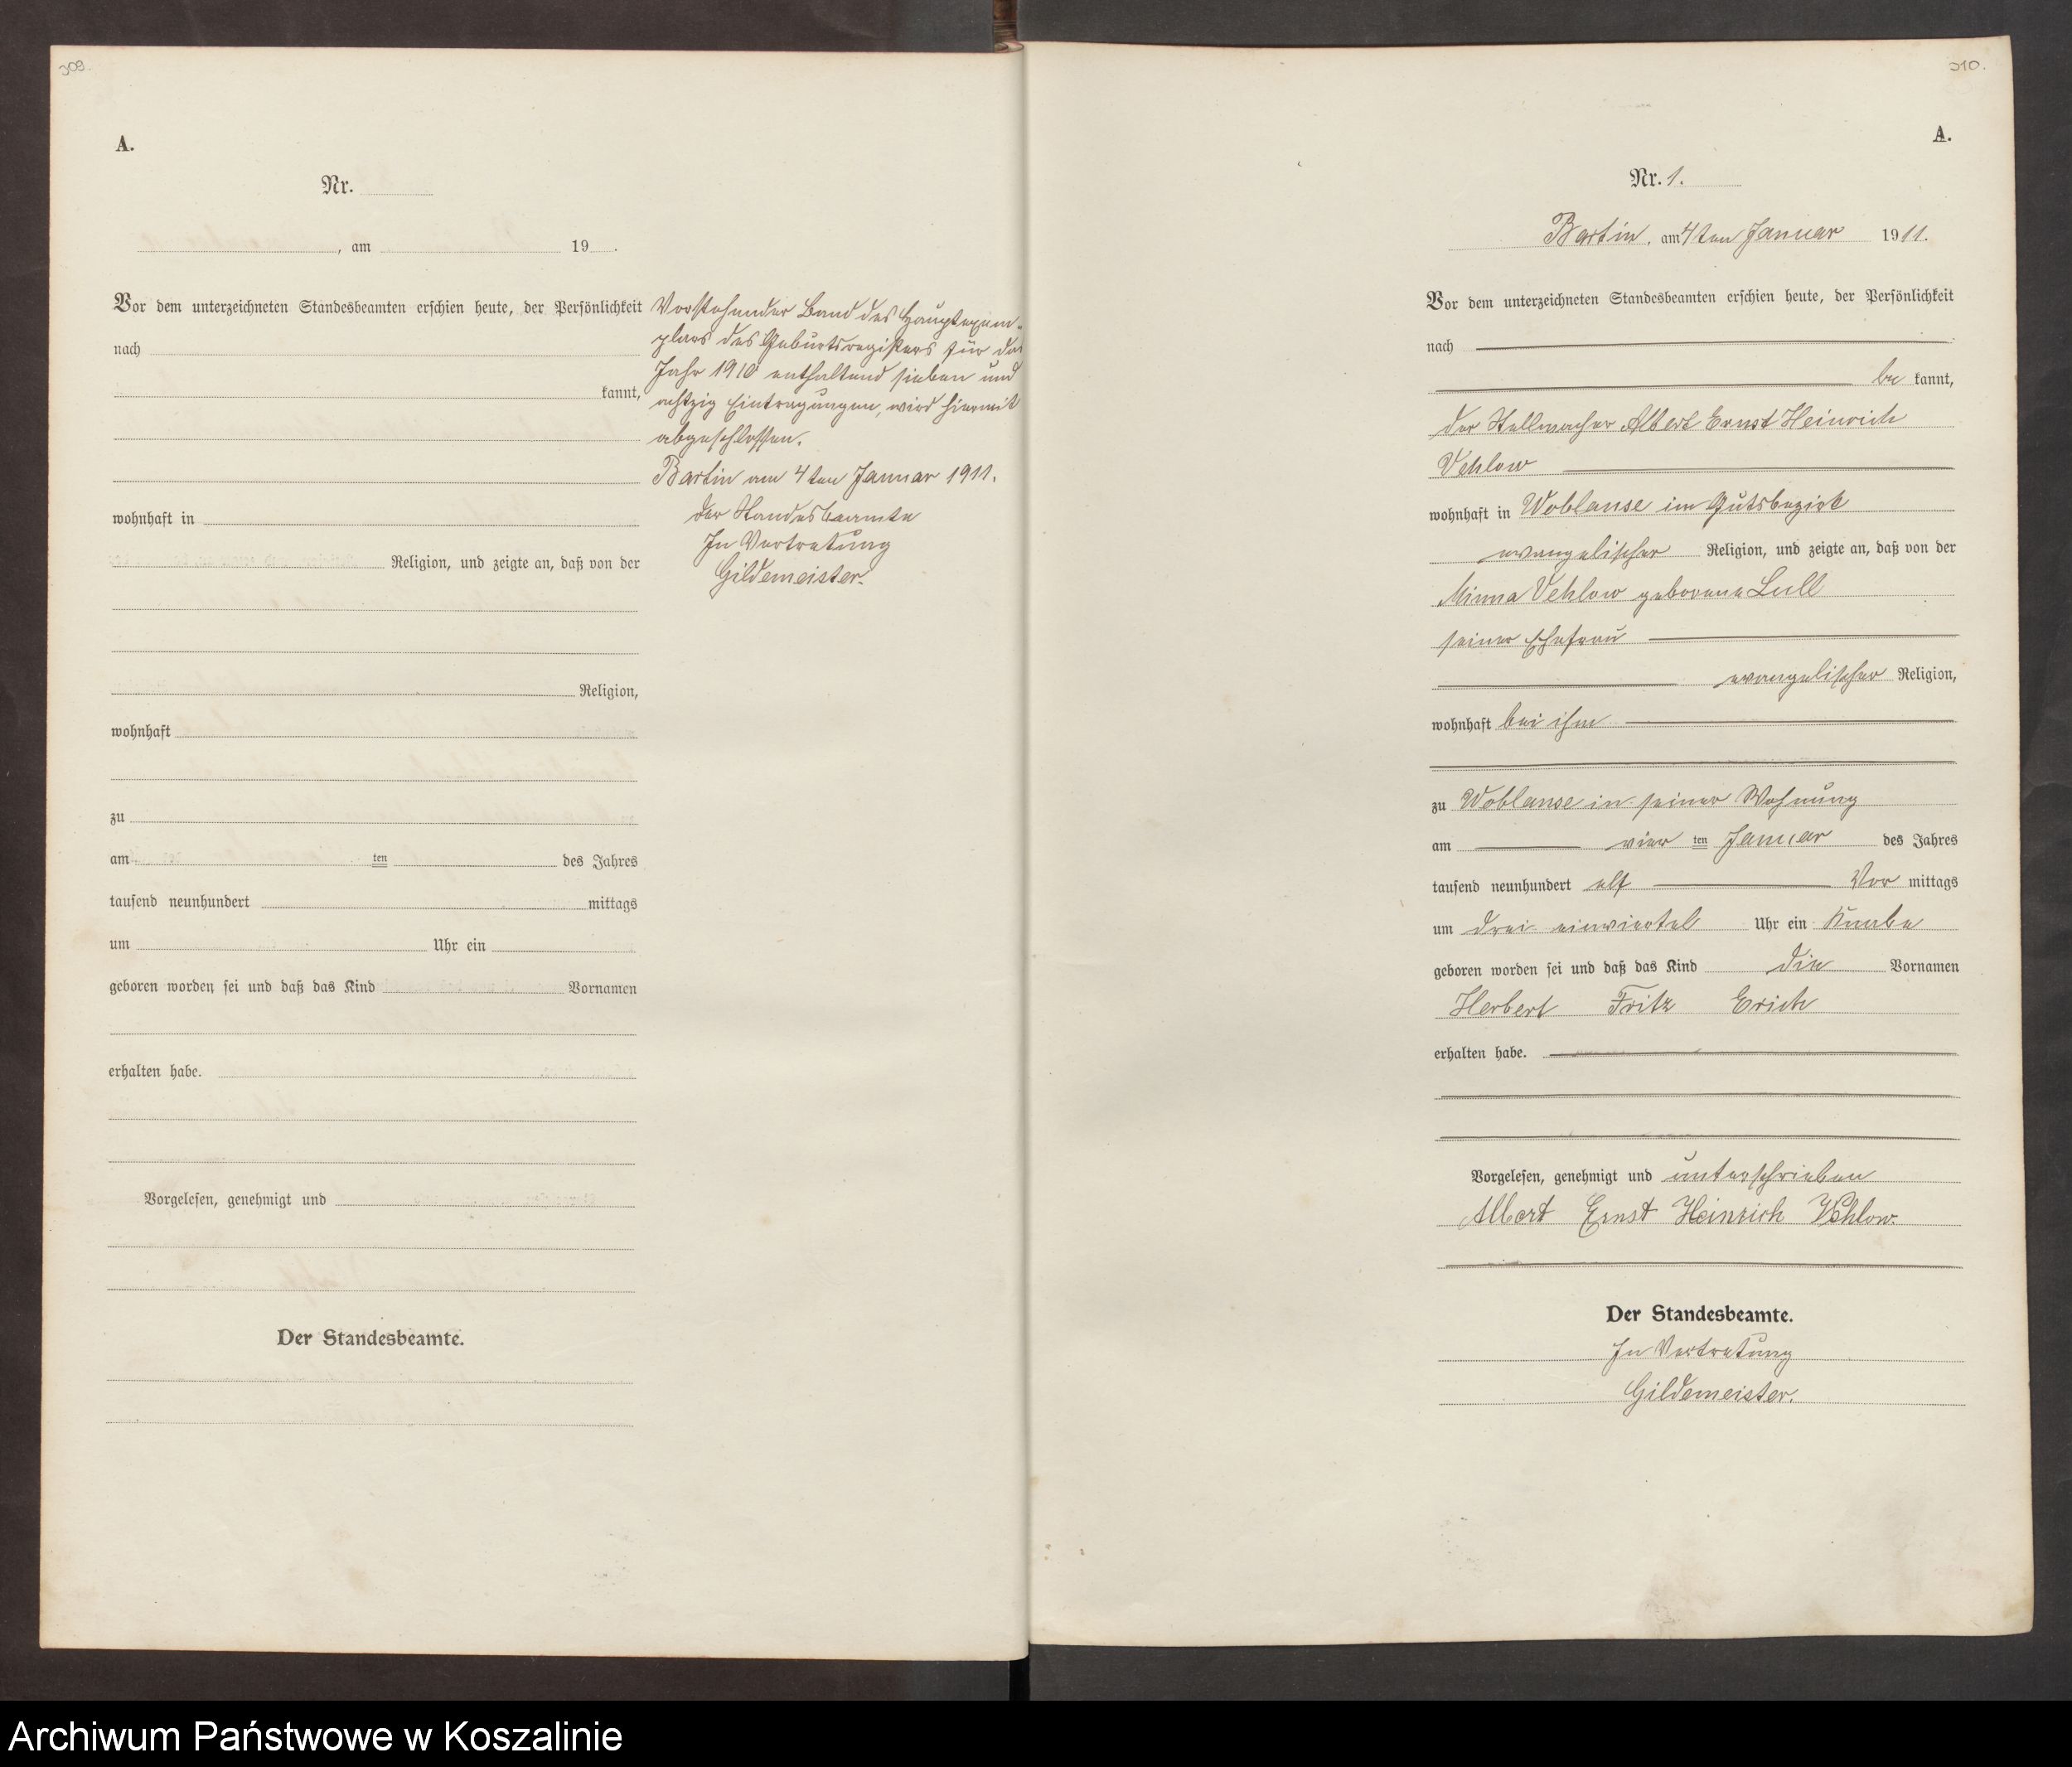 309.
A.
Nr.
, am 19 .
Vor dem unterzeichneten Standesbeamten erschien heute, der Persönlichkeit
nach
kannt,
wohnhaft in
Religion, und zeigte an, daß von der
Religion,
wohnhaft
zu
am ten des Jahres
tausend neunhundert mittags
um Uhr ein
geboren worden sei und daß das Kind Vornamen
erhalten habe.
Vorgelesen, genehmigt und
Der Standesbeamte.
Vorstehender Band des Hauptexem-
plars des Geburtsregisters für das
Jahr 1910 enthaltend sieben und
achtzig Eintragungen, wird hiermit
abgeschlossen.
Bartin am 4ten Januar 1911.
Der Standesbeamte
In Vertretung
Gildemeister.
310.
A.
Nr. 1.
Bartin, am 4ten Januar 1911.
Vor dem unterzeichneten Standesbeamten erschien heute, der Persönlichkeit
nach
be kannt,
der Stellmacher Albert Ernst Heinrich
Vehlow
wohnhaft in Woblanse im Gutsbezirk
evangelischer Religion, und zeigte an, daß von der
Minna Vehlow geborene Lull
seiner Ehefrau
evangelischer Religion,
wohnhaft bei ihm
zu Woblanse in seiner Wohnung
am vier ten Januar des Jahres
tausend neunhundert elf Vor mittags
um drei einviertel Uhr ein Knabe
geboren worden sei und daß das Kind die Vornamen
Herbert Fritz Erich
erhalten habe.
Vorgelesen, genehmigt und unterschrieben
Albert Ernst Heinrich Vehlow.
Der Standesbeamte.
In Vertretung
Gildemeister.
Archiwum Państwowe w Koszalinie